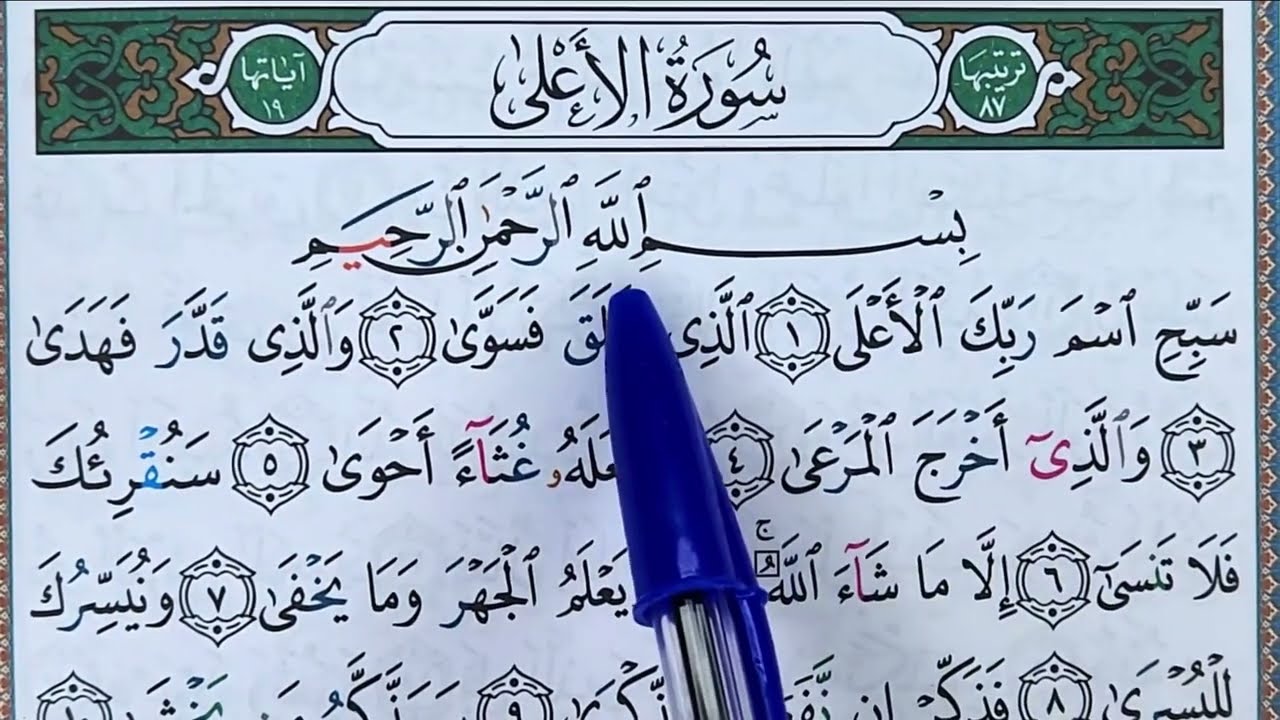 ترتيبها
٨٧
سُورَةُ الأَعْلىٰ
آياتها
١٩
بِسْمِ ٱللَّهِ ٱلرَّحْمَٰنِ ٱلرَّحِيمِ
سَبِّحِ ٱسْمَ رَبِّكَ ٱلْأَعْلَى ١ ٱلَّذِى فَسَوَّىٰ ٢ وَٱلَّذِى قَدَّرَ فَهَدَىٰ
٣ وَٱلَّذِىٓ أَخْرَجَ ٱلْمَرْعَىٰ ٤ غُثَآءً أَحْوَىٰ ٥ سَنُقْرِئُكَ
فَلَا تَنسَىٰٓ ٦ إِلَّا مَا شَآءَ ٱللَّهُ ۚ يَعْلَمُ ٱلْجَهْرَ وَمَا يَخْفَىٰ ٧ وَنُيَسِّرُكَ
لِلْيُسْرَىٰ ٨ فَذَكِّرْ إِن ٩ سَيَذَكَّرُ مَن يَخْشَىٰ ١٠